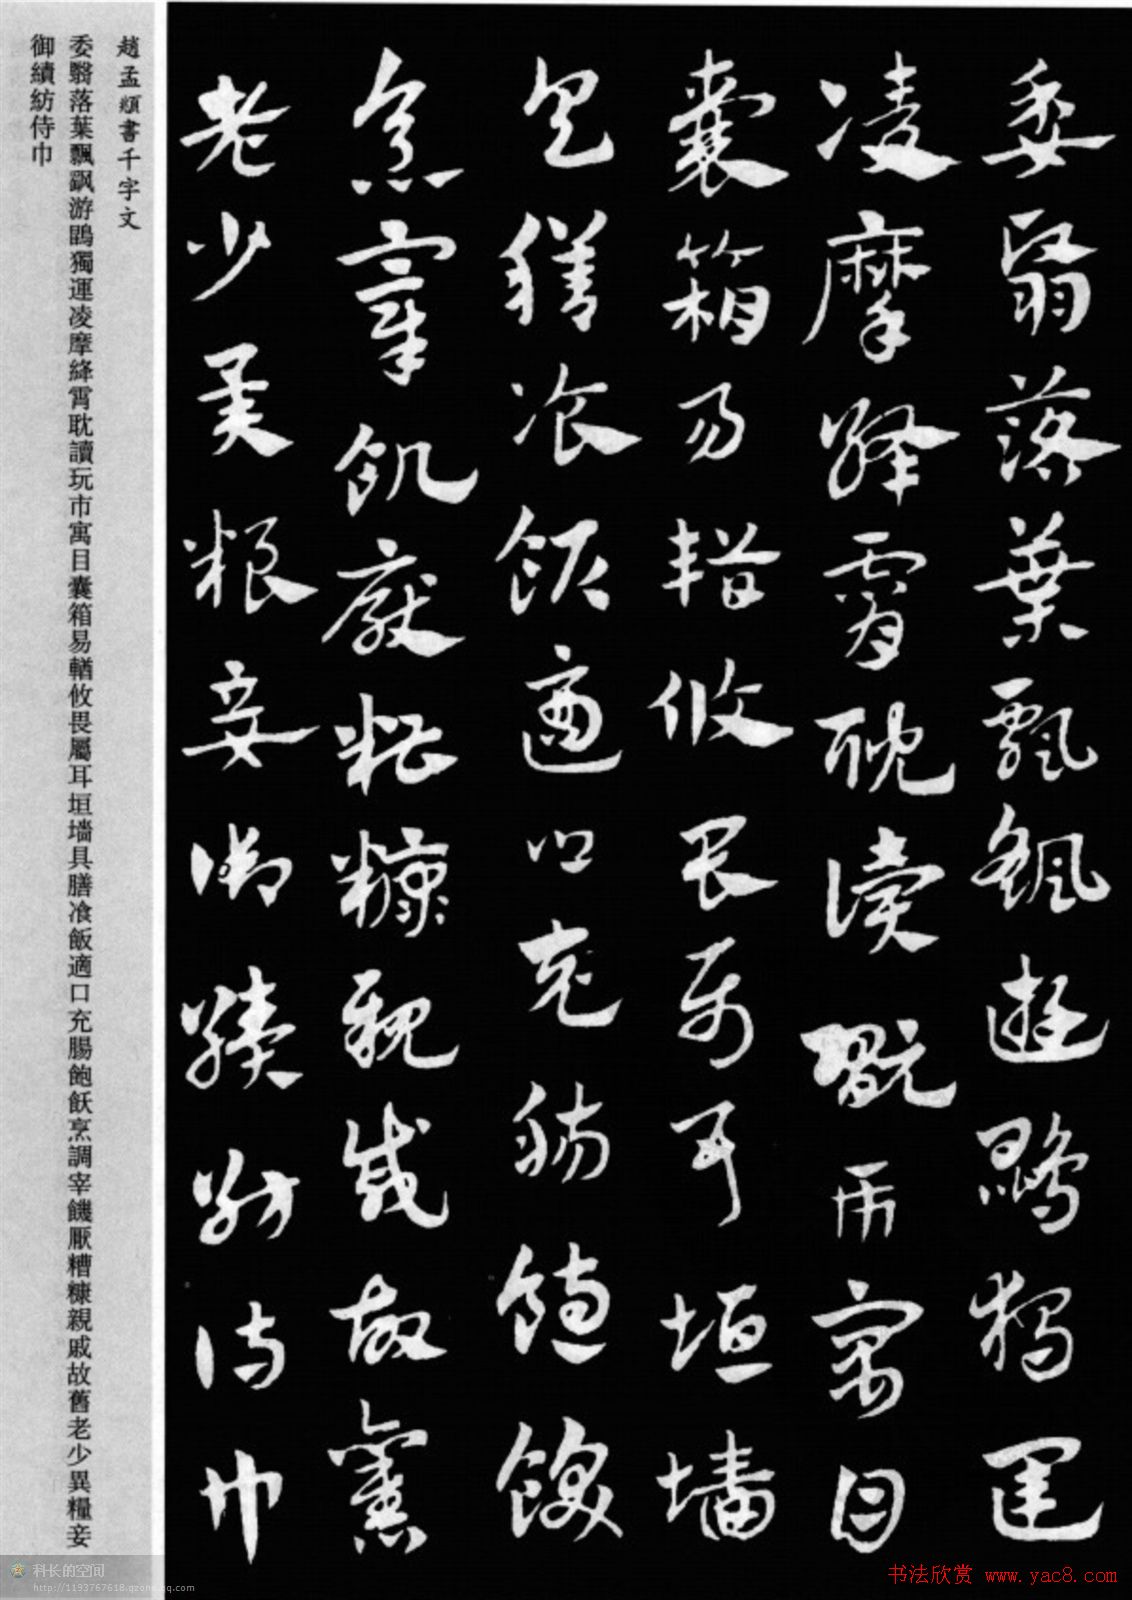 委翳落葉飄飖遊鵾獨運
凌摩絳霄耽讀翫市寓目
囊箱易輶攸畏属耳垣墻
具膳飡飯適口充腸飽飫
烹宰飢厭糟糠親戚故舊
老少異粮妾御績紡侍巾
趙孟頫書千字文
委翳落葉飄飖游鵾獨運凌摩絳霄耽讀玩市寓目囊箱易輶攸畏屬耳垣墻具膳飡飯適口充腸飽飫烹調宰饑厭糟糠親戚故舊老少異糧妾
御績紡侍巾
科长的空间
http://1193767618.qzone.qq.com
书法欣赏 www.yac8.com